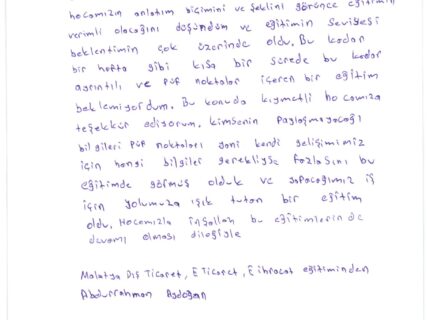 hocamızın anlatım biçimini ve şeklini görünce eğitimin
verimli olacağını düşündüm ve eğitimin seviyesi
beklentimin çok üzerinde oldu. Bu kadar
bir hafta gibi kısa bir sürede bu kadar
ayrıntılı ve püf noktalar içeren bir eğitim
beklemiyordum. Bu konuda kıymetli hocamıza
teşekkür ediyorum. kimsenin paylaşmayacağı
bilgileri püf noktaları yani kendi gelişimimiz
için hangi bilgiler gerekliyse fazlasını bu
eğitimde görmüş olduk ve yapacağımız iş
için yolumuza ışık tutan bir eğitim
oldu. Hocamızla inşallah bu eğitimlerin de
devamı olması dileğiyle
Malatya Dış Ticaret, E Ticaret, E ihracat eğitiminden
Abdurrahman Aydoğan